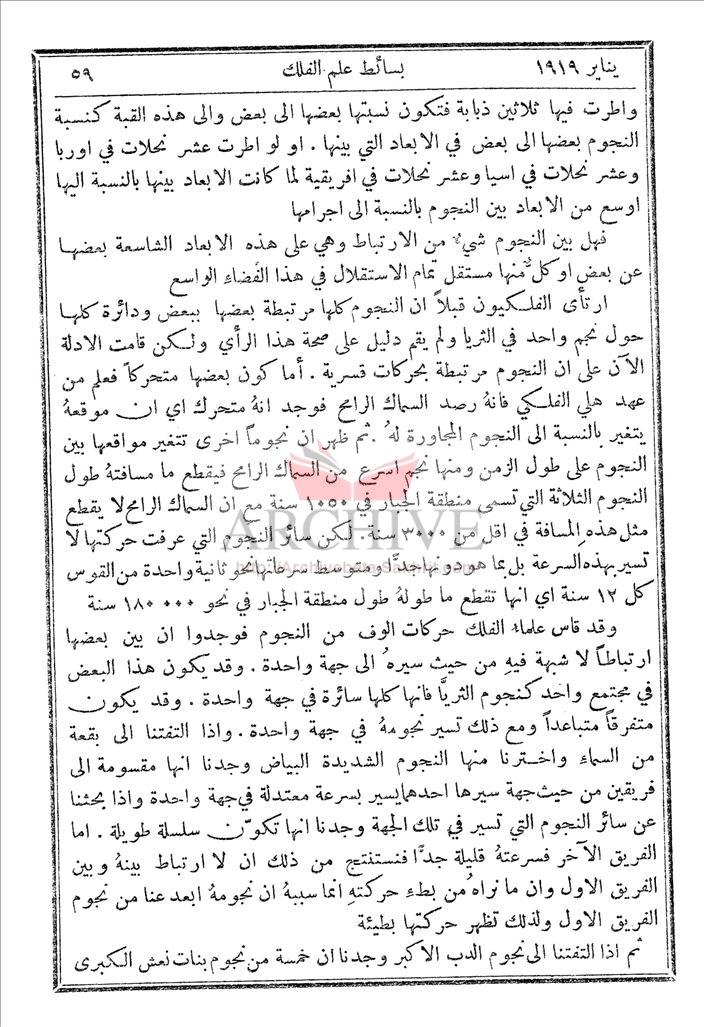 يناير ١٩١٩ بسائط علم الفلك ٥٩
واطرت فيها ثلاثين ذبابة فتكون نسبتها بعضها الى بعض والى هذه القبة كنسبة
النجوم بعضها الى بعض في الابعاد التي بينها . او لو اطرت عشر نحلات في اوربا
وعشر نحلات في اسيا وعشر نحلات في افريقية لما كانت الابعاد بينها بالنسبة اليها
اوسع من الابعاد بين النجوم بالنسبة الى اجرامها
فهل بين النجوم شيء من الارتباط وهي على هذه الابعاد الشاسعة بعضها
عن بعض او كل منها مستقل تمام الاستقلال في هذا الفضاء الواسع
ارتأى الفلكيون قبلاً ان النجوم كلها مرتبطة بعضها ببعض ودائرة كلها
حول نجم واحد في الثريا ولم يقم دليل على صحة هذا الرأي ولكن قامت الادلة
الآن على ان النجوم مرتبطة بحركات قسرية . أما كون بعضها متحركاً فعلم من
عهد هلي الفلكي فانهُ رصد السماك الرامح فوجد انهُ متحرك اي ان موقعهُ
يتغير بالنسبة الى النجوم المجاورة لهُ . ثم ظهر ان نجوماً اخرى تتغير مواقعها بين
النجوم على طول الزمن ومنها نجم اسرع من السماك الرامح فيقطع ما مسافتهُ طول
النجوم الثلاثة التي تسمى منطقة الجبار في ١٠٥٠ سنة مع ان السماك الرامح لا يقطع
مثل هذه المسافة في اقل من ٣٠٠٠ سنة. لكن سائر النجوم التي عرفت حركتها لا
تسير بهذه السرعة بل بما هو دونها جدًّا ومتوسط سرعتها نحو ثانية واحدة من القوس
كل ١٢ سنة اي انها تقطع ما طولهُ طول منطقة الجبار في نحو ١٨٠٠٠٠ سنة
وقد قاس علماء الفلك حركات الوف من النجوم فوجدوا ان بين بعضها
ارتباطاً لا شبهة فيهِ من حيث سيرهُ الى جهة واحدة . وقد يكون هذا البعض
في مجتمع واحد كنجوم الثريَّا فانها كلها سائرة في جهة واحدة . وقد يكون
متفرقاً متباعداً ومع ذلك تسير نجومهُ في جهة واحدة . واذا التفتنا الى بقعة
من السماء واخترنا منها النجوم الشديدة البياض وجدنا انها مقسومة الى
فريقين من حيث جهة سيرها احدهما يسير بسرعة معتدلة في جهة واحدة واذا بحثنا
عن سائر النجوم التي تسير في تلك الجهة وجدنا انها تكوّن سلسلة طويلة . اما
الفريق الآخر فسرعتهُ قليلة جدًّا فنستنتج من ذلك ان لا ارتباط بينهُ وبين
الفريق الاول وان ما نراهُ من بطء حركتهِ انما سببهُ ان نجومهُ ابعد عنا من نجوم
الفريق الاول ولذلك تظهر حركتها بطيئة
ثم اذا التفتنا الى نجوم الدب الاكبر وجدنا ان خمسة من نجوم بنات نعش الكبرى
ARCHIVE